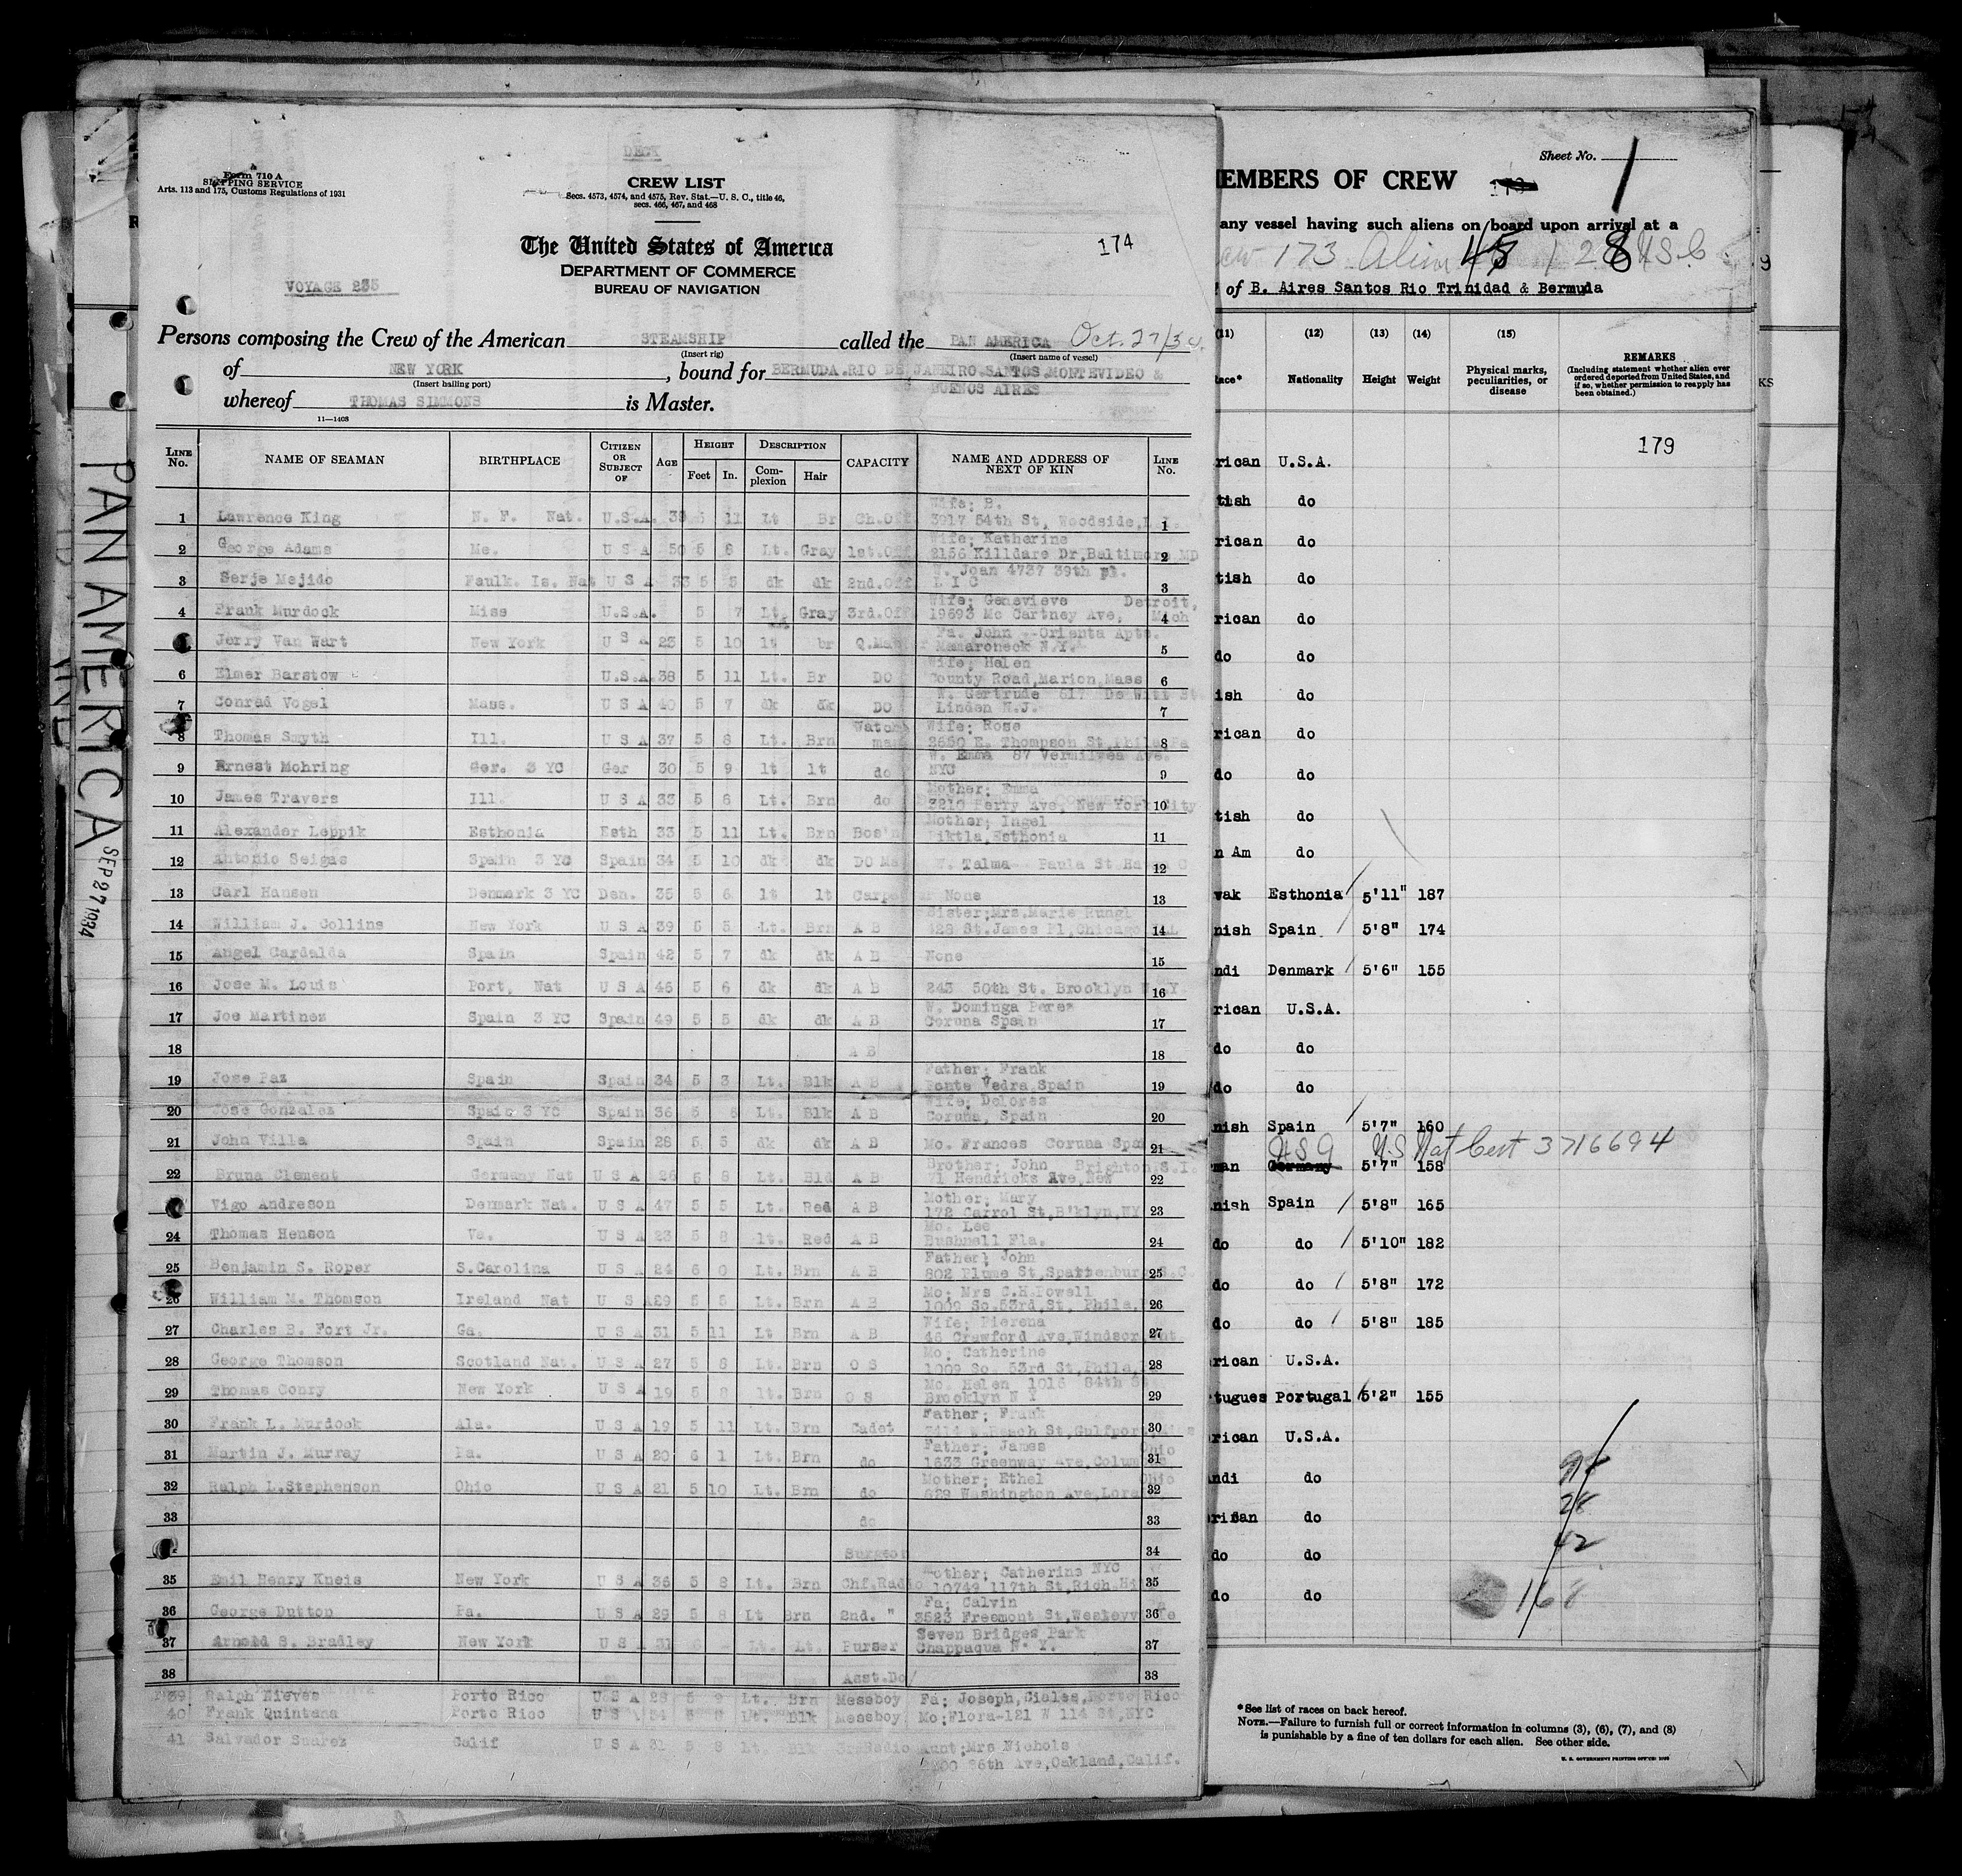 DECK
Form 710 A
SHIPPING SERVICE
Arts. 113 and 175, Customs Regulations of 1931
CREW LIST
Secs. 4573, 4574, and 4575, Rev. Stat.—U. S. C., title 46,
secs. 466, 467, and 468
The United States of America
DEPARTMENT OF COMMERCE
BUREAU OF NAVIGATION
174
VOYAGE 235
Persons composing the Crew of the American STEAMSHIP called the PAN AMERICA Oct. 27/34.
(Insert rig) (Insert name of vessel)
of NEW YORK, bound for BERMUDA.RIO DE JANEIRO.SANTOS.MONTEVIDEO &
(Insert hailing port) BUENOS AIRES
whereof THOMAS SIMMONS is Master.
11—1408
LINE No. NAME OF SEAMAN BIRTHPLACE CITIZEN OR SUBJECT OF AGE HEIGHT Feet In. DESCRIPTION Complexion Hair CAPACITY NAME AND ADDRESS OF NEXT OF KIN LINE No.
Wife; B.
1 Lawrence King N. F. Nat. U.S.A. 38 5 11 Lt Br Ch.Off 3917 54th St, Woodside, 1
Wife; Katherine
2 George Adams Me. U S A 50 5 8 Lt. Gray 1st.Off 2156 Killdare Dr,Baltimore MD 2
W. Joan 4737 39th pl.
3 Serje Mejido Faulk. Is. Nat U S A 33 5 5 dk dk 2nd.Off L I C 3
Wife; Genevieve Detroit,
4 Frank Murdock Miss U.S.A. 5 7 Lt. Gray 3rd.Off 19693 Mc Cartney Ave, Mich 4
Fa. John - Orienta Apts.
Jerry Van Wart New York U S A 23 5 10 lt br Q.Master Mamaroneck N.Y. 5
Wife; Helen
6 Elmer Barstow U.S.A. 38 5 11 Lt. Br DO County Road,Marion,Mass 6
W. Gertrude 517 De Witt St
7 Conrad Vogel Mass. U S A 40 5 7 dk dk DO Linden N.J. 7
Watch Wife; Rose
8 Thomas Smyth Ill. U S A 37 5 8 Lt. Brn man 2650 E. Thompson St,Phila Pa 8
W. Emma 87 Vermilyea Ave.
9 Ernest Mohring Ger. 3 YC Ger 30 5 9 lt lt do NYC 9
Mother; Emma
10 James Travers Ill. U S A 33 5 6 Lt. Brn do 3210 Perry Ave, New York City 10
Mother; Ingel
11 Alexander Leppik Esthonia Esth 33 5 11 Lt. Brn Bos'n Esthonia 11
12 Antonio Seigas Spain 3 YC Spain 34 5 10 dk dk DO Ma W. Talma Paula St 12
13 Carl Hansen Denmark 3 YC Den. 35 5 6 lt lt Carp None 13
Sister;Mrs.Marie Rungl
14 William J. Collins New York U S A 39 5 5 Lt. Brn A B 428 St.James Pl,Chicago 14
15 Angel Cardalda Spain Spain 42 5 7 dk dk A B None 15
16 Jose M. Louis Port, Nat U S A 46 5 6 dk dk A B 243 50th St. Brooklyn N.Y. 16
W. Dominga Perez
17 Joe Martinez Spain 3 YC Spain 49 5 5 dk dk A B Coruna Spain 17
18 A B 18
Father; Frank
19 Jose Paz Spain Spain 34 5 3 Lt. Blk A B Ponte Vedra,Spain 19
Wife; Delores
20 Jose Gonzalez Spain 3 YC Spain 36 5 8 Lt. Blk A B Coruna, Spain 20
21 John Villa Spain Spain 28 5 5 dk dk A B Mo. Frances Coruna Spa 21
Brother; John Brighton S.I.
22 Bruna Clement Germany Nat U S A 26 5 8 Lt. Bld A B 71 Hendricks Ave,New 22
Mother; Mary
Vigo Andreson Denmark Nat. U S A 47 5 5 Lt. Red A B 172 Carrol St,B'klyn,NY 23
Mo. Lee
24 Thomas Henson Va. U S A 23 5 8 lt. Red A B Bushnell Fla. 24
Father; John
25 Benjamin S. Roper S.Carolina U S A 24 6 0 Lt. Brn A B 802 Plume St,Spartenburg S.C. 25
Mo; Mrs C.H.Powell
26 William M. Thomson Ireland Nat U S A 29 5 5 Lt. Brn A B 1009 So.53rd,St, Phila, 26
Wife; Pierena
27 Charles B. Fort Jr. Ga. U S A 31 5 11 Lt Brn A B 46 Crawford Ave,Windsor Ont 27
Mo; Catherine
28 George Thomson Scotland Nat. U S A 27 5 8 Lt. Brn O S 1009 So. 53rd St,Phila, 28
Mo. Helen 1016 84th St
29 Thomas Conry New York U S A 19 5 8 lt. Brn O S Brooklyn N Y 29
Father; Frank
30 Frank L. Murdock Ala. U S A 19 5 11 Lt. Brn Cadet Beach St,Gulfport, 30
Father; James Ohio
31 Martin J. Murray Pa. U S A 20 6 1 Lt. Brn do 1633 Greenway Ave,Columbus 31
Mother; Ethel Ohio
32 Ralph L.Stephenson Ohio U S A 21 5 10 Lt. Brn do 628 Washington Ave,Lora 32
33 do 33
Surgeon 34
Mother; Catherine NYC
35 Emil Henry Kneis New York U S A 36 5 8 Lt. Brn Chf.Radio 10749 117th St,Rich.Hi 35
Fa; Calvin
36 George Dutton Pa. U S A 29 5 8 Lt Brn 2nd. " 3523 Freemont St,Wesleyv 36
Seven Bridges Park
37 Arnold S. Bradley New York U S A 31 6 - Lt. Lt. Purser Chappaqua N. Y. 37
38 Asst.Do 38
39 Ralph Nieves Porto Rico U S A 28 5 Lt. Brn Messboy Fa; Joseph,Ciales,Porto Rico
40 Frank Quintana Porto Rico U S A 34 5 8 Lt. Blk Messboy Mo;Flora-121 W 114 St,NYC
41 Salvador Suarez Calif U S A 31 5 8 lt. Blk 3rdRadio Aunt;Mrs Nichols
86th Ave,Oakland,Calif.
PAN AMERICA SEP 27 1934
Sheet No. 1
EMBERS OF CREW
any vessel having such aliens on board upon arrival at a
173 Alien 45 128 USC
of B. Aires Santos Rio Trinidad & Bermuda
(11) (12) (13) (14) (15)
Race* Nationality Height Weight Physical marks, peculiarities, or disease
REMARKS
(Including statement whether alien ever ordered deported from United States, and if so, whether permission to reapply has been obtained.)
179
rican U.S.A.
tish do
rican do
tish do
rican do
do do
ish do
rican do
do do
tish do
n Am do
vak Esthonia 5'11" 187
nish Spain 5'8" 174
ndi Denmark 5'6" 155
rican U.S.A.
do do
do do
nish Spain 5'7" 160
USA US Nat Cert 3716694
man Germany 5'7" 158
nish Spain 5'8" 165
do do 5'10" 182
do do 5'8" 172
do do 5'8" 185
rican U.S.A.
tugues Portugal 5'2" 155
rican U.S.A.
ndi do
rican do
do do
do do
98
28
42
168
*See list of races on back hereof.
NOTE.—Failure to furnish full or correct information in columns (3), (6), (7), and (8)
is punishable by a fine of ten dollars for each alien. See other side.
U. S. GOVERNMENT PRINTING OFFICE